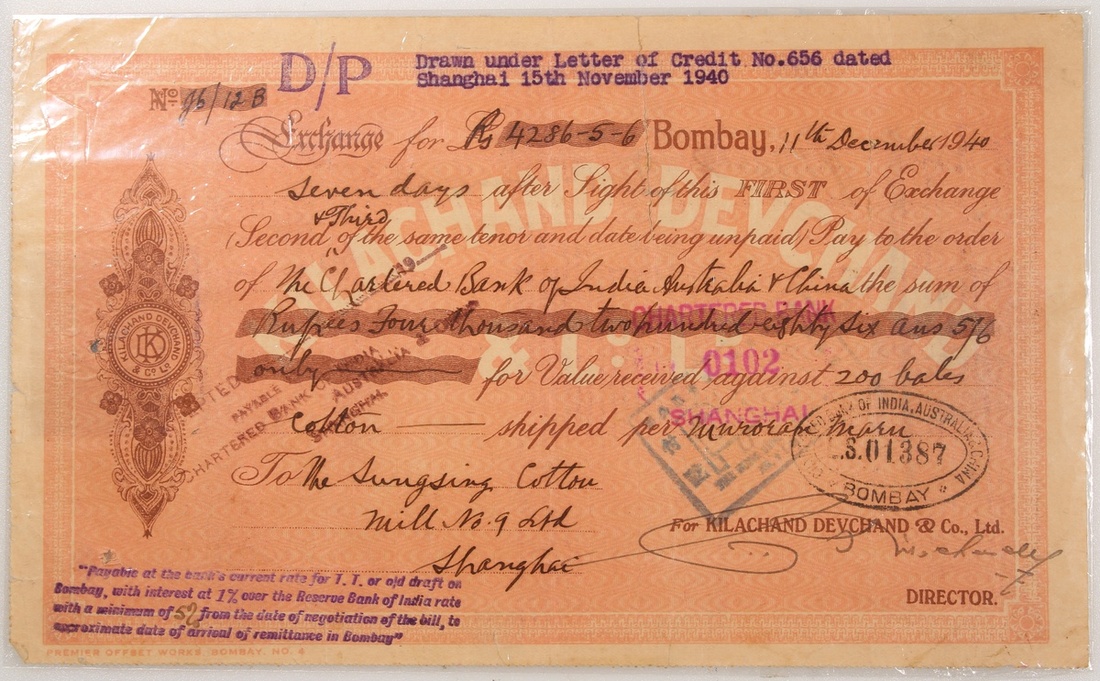 D/P Drawn under Letter of Credit No.656 dated
Shanghai 15th November 1940
No 76/12B
Exchange for Rs 4286-5-6 Bombay, 11th December 1940
Seven days after Sight of this FIRST of Exchange
& Third
(Second of the same tenor and date being unpaid) Pay to the order
of The Chartered Bank of India Australia & China the sum of
Rupees Four thousand two hundred eighty six ans 5/6
only for Value received against 200 bales
Cotton shipped per Muroran Maru
To The Sungsing Cotton
Mill No. 9 Ltd
Shanghai
For KILACHAND DEVCHAND & Co., Ltd.
DIRECTOR.
KILACHAND DEVCHAND
& Co Ld
KILACHAND DEVCHAND
&
19
PAYABLE
CHARTERED BANK INDIA
AUSTRALIA
SHANGHAI
CHARTERED BANK
0102
SHANGHAI
BANK OF INDIA, AUSTRALIA & CHINA
.S.01387
BOMBAY
"Payable at the bank's current rate for T. T. or o/d draft on
Bombay, with interest at 1% over the Reserve Bank of India rate
with a minimum of 5% from the date of negotiation of the bill, to
approximate date of arrival of remittance in Bombay"
PREMIER OFFSET WORKS, BOMBAY, NO. 4